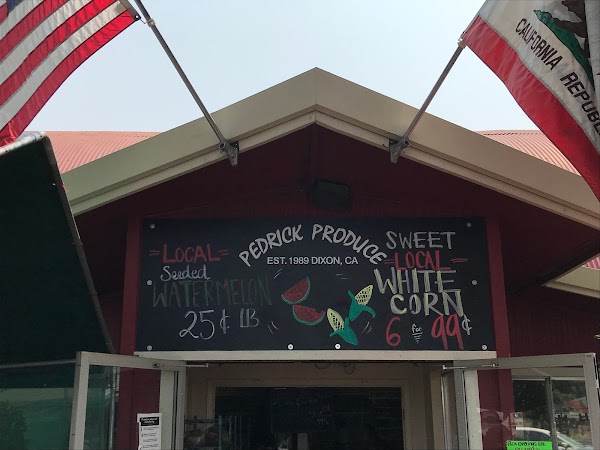 CALIFORNIA REPUBLIC
PEDRICK PRODUCE
EST. 1989 DIXON, CA
= LOCAL =
Seeded
WATERMELON
25¢ LB
SWEET
= LOCAL =
WHITE
CORN
6 for 99¢